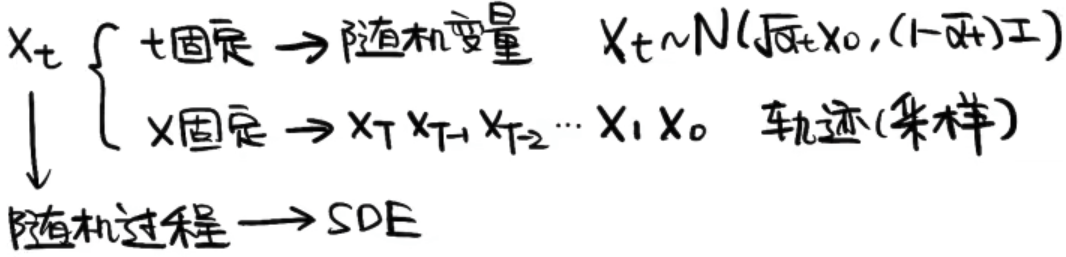 Xt { t固定 → 随机变量 Xt~N(√ᾱt X0, (1-ᾱt)I)
X固定 → XT XT-1 XT-2 ... X1 X0 轨迹(采样)
随机过程 → SDE